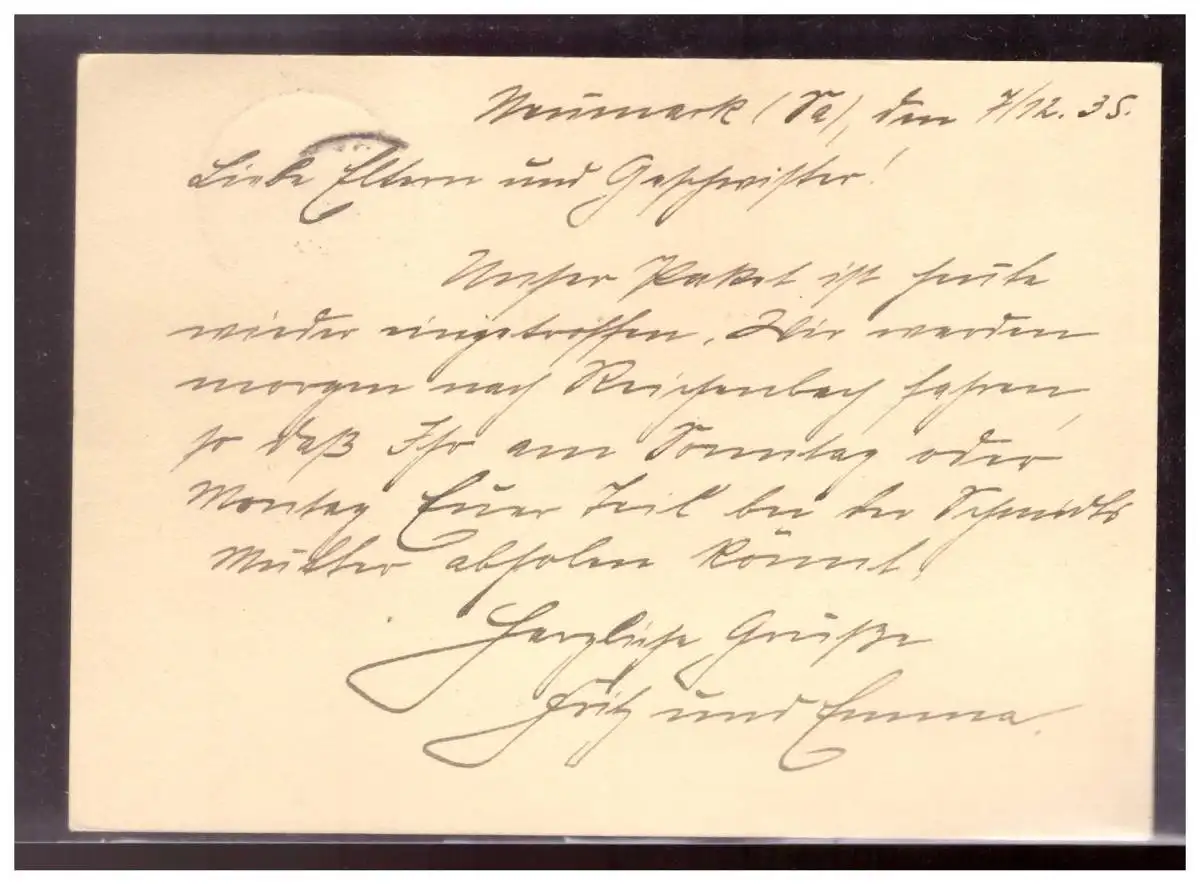 Neumark (Sa), den 7/12. 35.
Liebe Eltern und Geschwister!
Unser Paket ist heute
wieder eingetroffen. Wir werden
morgen nach Reichenbach fahren,
so daß Ihr am Sonntag oder
Montag Euer Teil bei der Schmidts
Mutter abholen könnt.
Herzliche Grüße
Fritz und Emma.